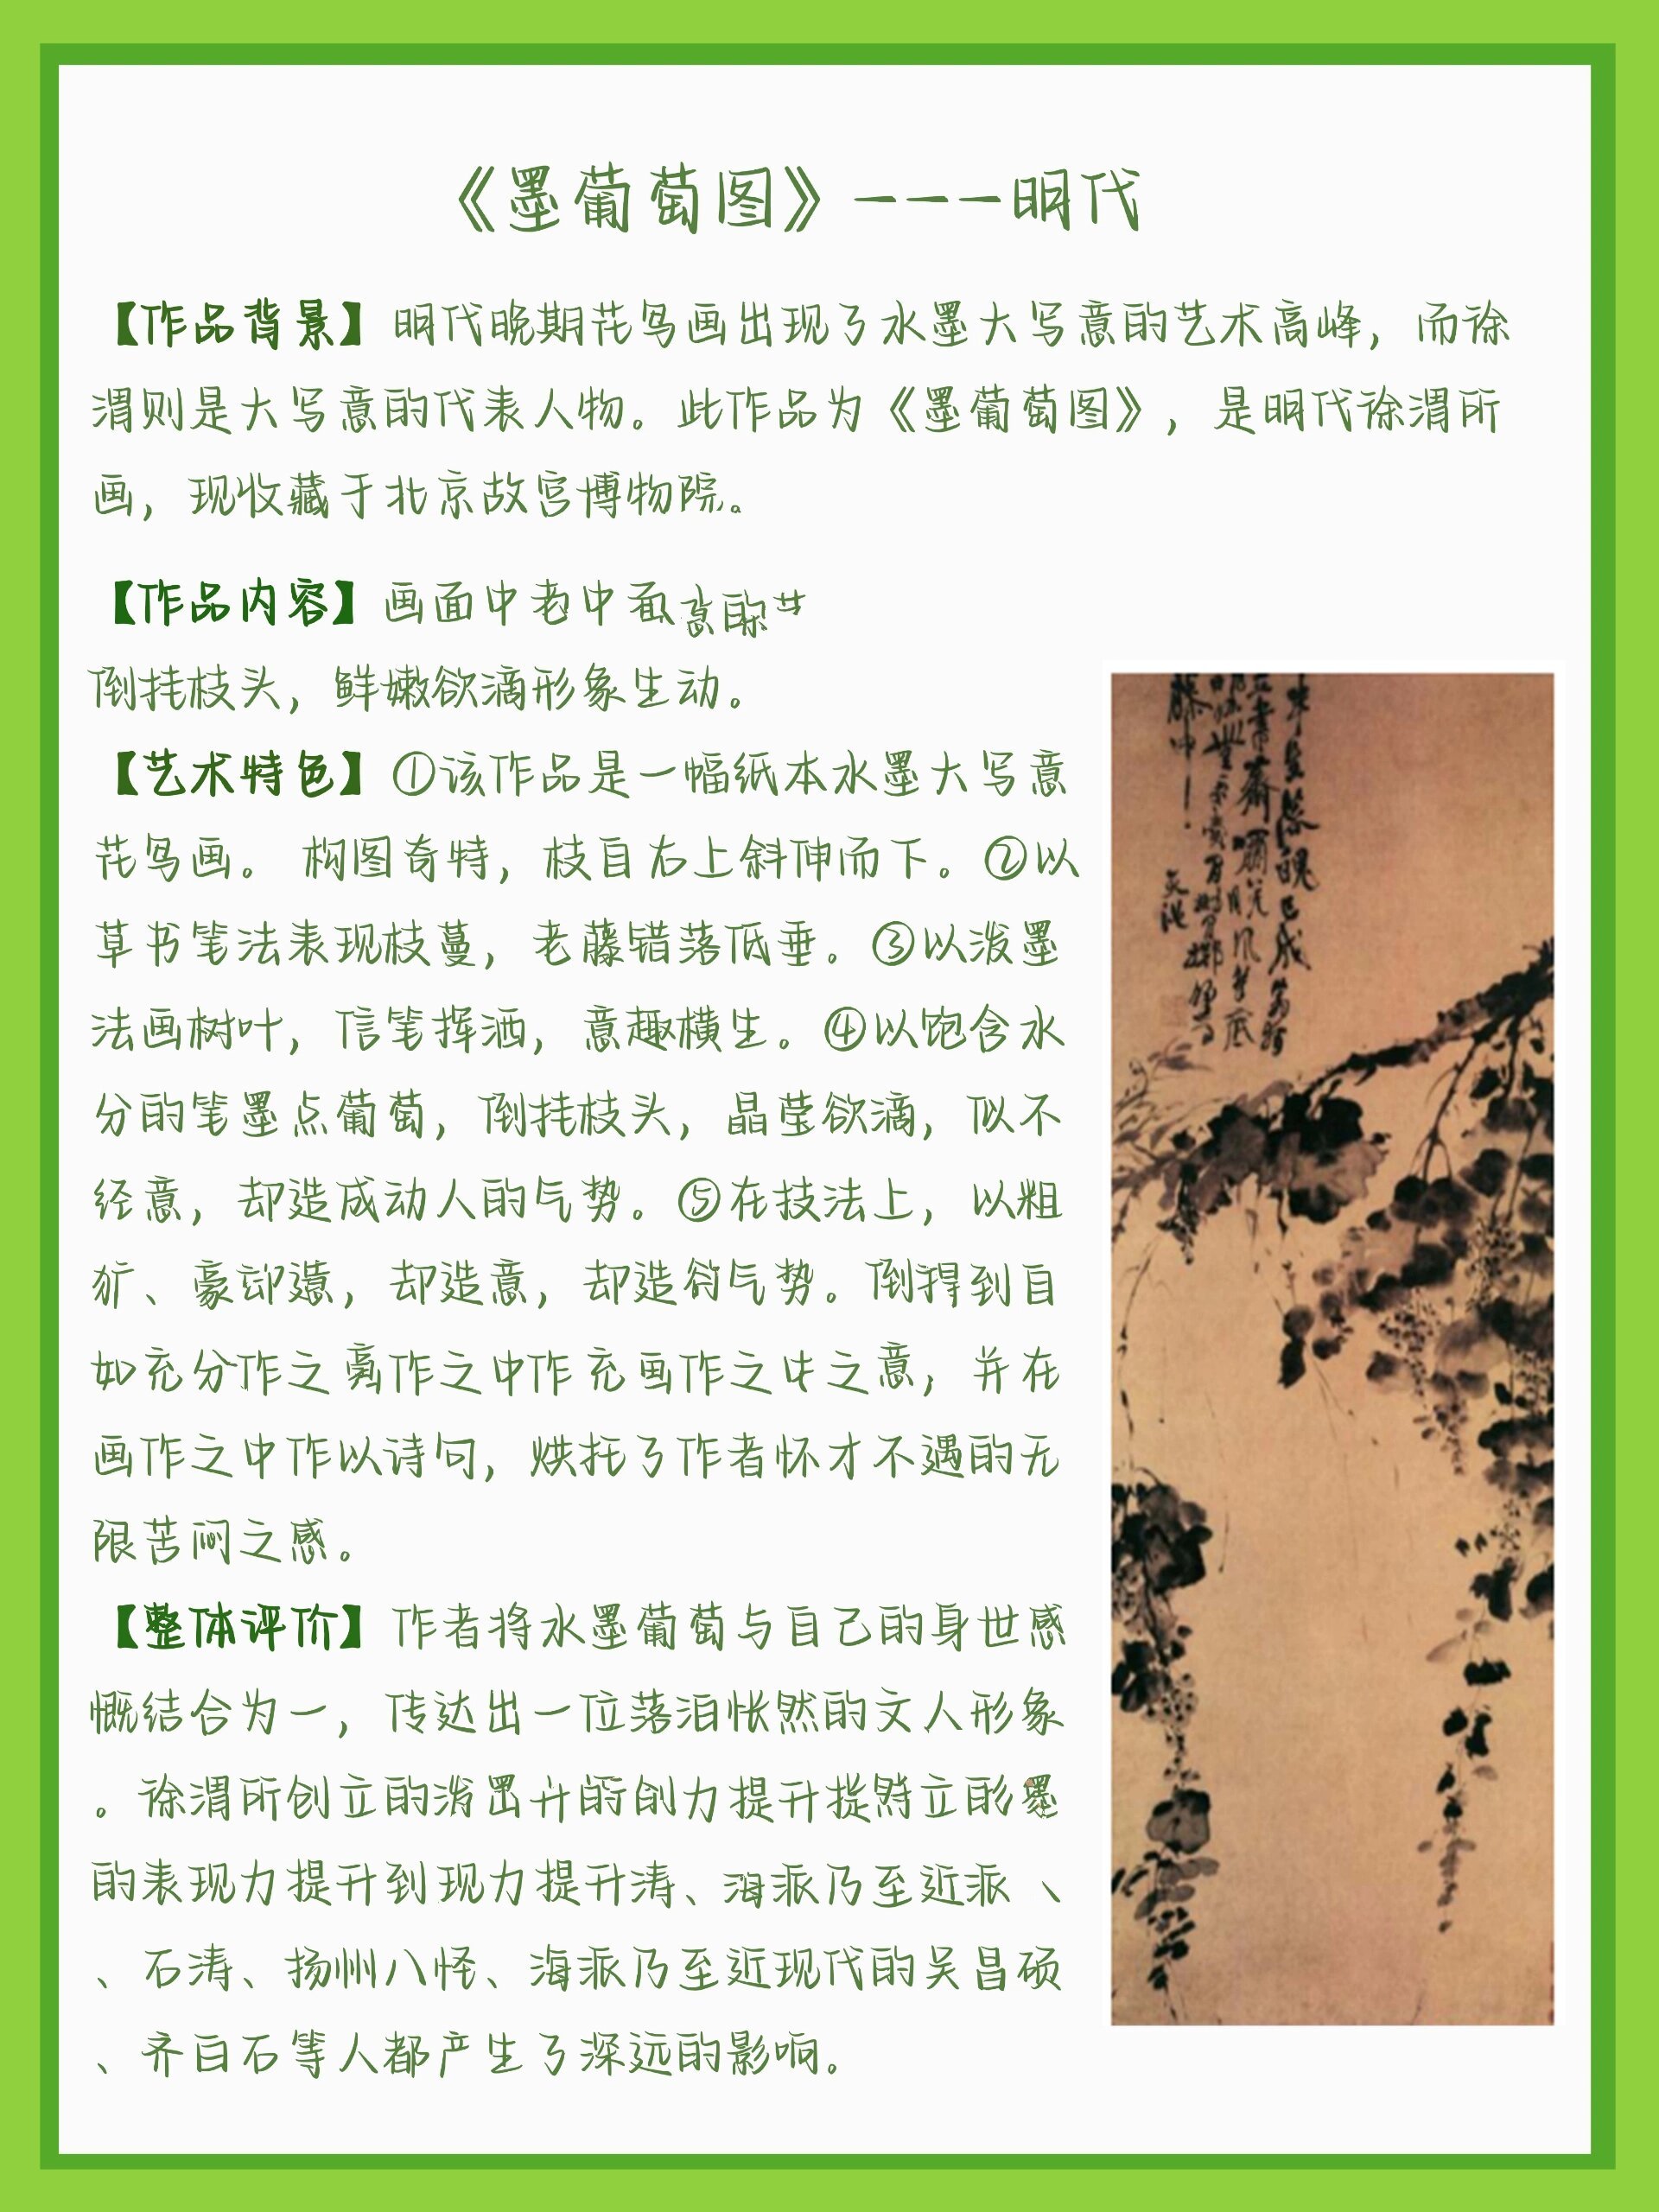 《墨葡萄图》---明代
【作品背景】明代晚期花鸟画出现了水墨大写意的艺术高峰，而徐
渭则是大写意的代表人物。此作品为《墨葡萄图》，是明代徐渭所
画，现收藏于北京故宫博物院。
【作品内容】画面中老中面
倒挂枝头，鲜嫩欲滴形象生动。
【艺术特色】①该作品是一幅纸本水墨大写意
花鸟画。 构图奇特，枝自右上斜伸而下。②以
草书笔法表现枝蔓，老藤错落低垂。③以泼墨
法画树叶，信笔挥洒，意趣横生。④以饱含水
分的笔墨点葡萄，倒挂枝头，晶莹欲滴，似不
经意，却造成动人的气势。⑤在技法上，以粗
犷、豪，却造意，却造气势。倒得到自
如充分作之作之中作充画作之之意，并在
画作之中作以诗句，烘托了作者怀才不遇的无
限苦闷之感。
【整体评价】作者将水墨葡萄与自己的身世感
慨结合为一，传达出一位落泊怅然的文人形象
。徐渭所创立的力提升立
的表现力提升到现力提升涛、海派乃至近派、
、石涛、扬州八怪、海派乃至近现代的吴昌硕
、齐白石等人都产生了深远的影响。